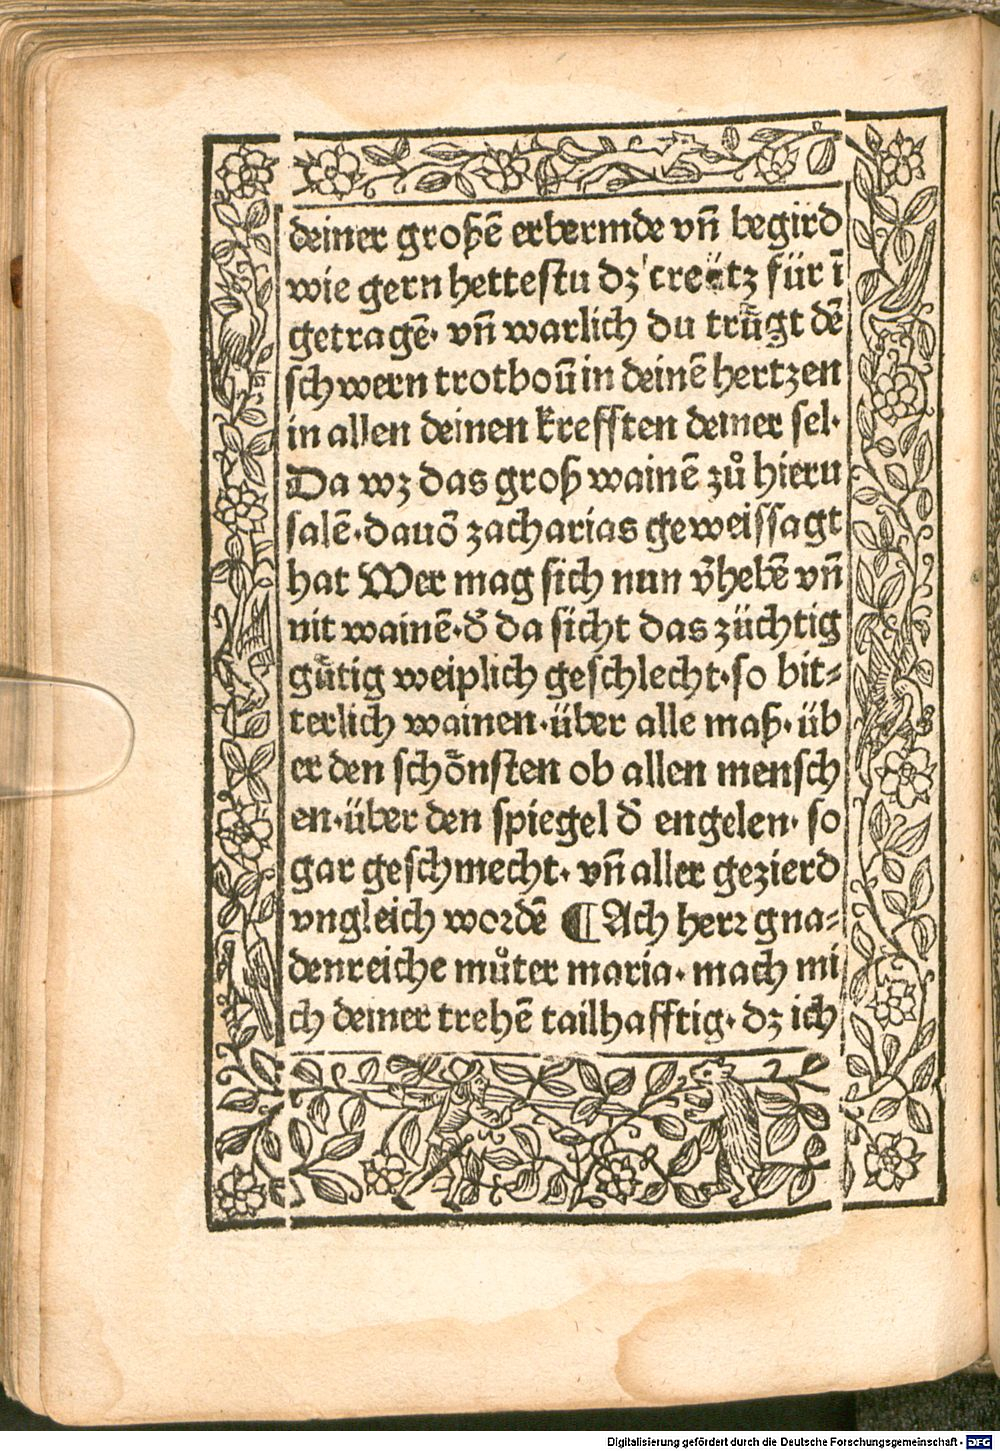 deiner großē erbermde vñ begird
wie gern hettestu dz creütz für ī
getragē· vñ warlich du trůgt dē
schwern trotboū in deinē hertzen
in allen deinen krefften deiner sel·
Da wz das groß wainē zů hieru
salē·dauō zacharias geweissagt
hat Wer mag sich nun v̄hebē vñ
nit wainē·d̄ da sicht das züchtig
gůtig weiplich geschlecht·so bit⸗
terlich wainen·über alle maß·üb
er den schönsten ob allen mensch
en·über den spiegel d̄ engelen· so
gar geschmecht· vñ aller gezierd
vngleich wordē ¶ Ach herr gna⸗
denreiche můter maria· mach mi
ch deiner trehē tailhafftig· dz ich
Digitalisierung gefördert durch die Deutsche Forschungsgemeinschaft - DFG